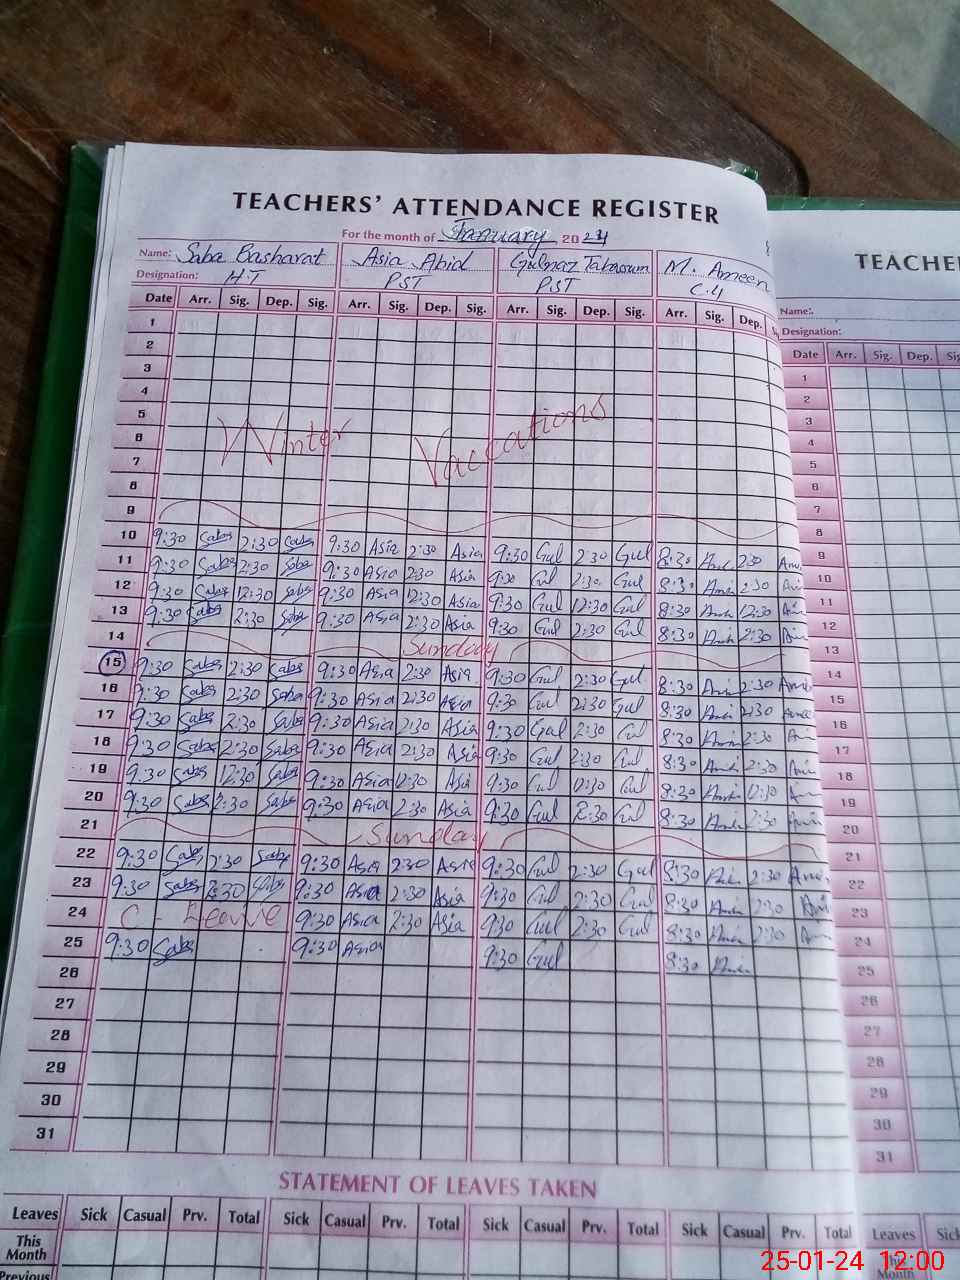 TEACHERS' ATTENDANCE REGISTER
For the month of January 2024
Name: Saba Basharat Asia Abid Gulnaz Tabasum M. Ameen
Designation: H.T PST PST C.4
Date Arr. Sig. Dep. Sig. Arr. Sig. Dep. Sig. Arr. Sig. Dep. Sig. Arr. Sig. Dep.
1
2
3
4
5
6 Winter Vaccations
7
8
9
10 9:30 Saba 2:30 Saba 9:30 Asia 2:30 Asia 9:30 Gul 2:30 Gul 8:30 2:30
11 9:30 Saba 2:30 Saba 9:30 Asia 2:30 Asia 9:30 Gul 2:30 Gul 8:30 2:30
12 9:30 Saba 12:30 Saba 9:30 Asia 12:30 Asia 9:30 Gul 12:30 Gul 8:30 12:30
13 9:30 Saba 2:30 Saba 9:30 Asia 2:30 Asia 9:30 Gul 2:30 Gul 8:30 2:30
14 Sunday
15 9:30 Saba 2:30 Saba 9:30 Asia 2:30 Asia 9:30 Gul 2:30 Gul 8:30 2:30
16 9:30 Saba 2:30 Saba 9:30 Asia 2:30 Asia 9:30 Gul 2:30 Gul 8:30 2:30
17 9:30 Saba 2:30 Saba 9:30 Asia 2:30 Asia 9:30 Gul 2:30 Gul 8:30 2:30
18 9:30 Saba 2:30 Saba 9:30 Asia 2:30 Asia 9:30 Gul 2:30 Gul 8:30 2:30
19 9:30 Saba 12:30 Saba 9:30 Asia 12:30 Asia 9:30 Gul 12:30 Gul 8:30 12:30
20 9:30 Saba 2:30 Saba 9:30 Asia 2:30 Asia 9:30 Gul 2:30 Gul 8:30 2:30
21 Sunday
22 9:30 Saba 2:30 Saba 9:30 Asia 2:30 Asia 9:30 Gul 2:30 Gul 8:30 2:30
23 9:30 Saba 2:30 Saba 9:30 Asia 2:30 Asia 9:30 Gul 2:30 Gul 8:30 2:30
24 C - Leavve 9:30 Asia 2:30 Asia 9:30 Gul 2:30 Gul 8:30 2:30
25 9:30 Saba 9:30 Asia 9:30 Gul 8:30
26
27
28
29
30
31
STATEMENT OF LEAVES TAKEN
Leaves Sick Casual Prv. Total Sick Casual Prv. Total Sick Casual Prv. Total Sick Casual Prv. Total
This Month
Previous
TEACHE
Name:
Designation:
Date Arr. Sig. Dep.
1
2
3
4
5
6
7
8
9
10
11
12
13
14
15
16
17
18
19
20
21
22
23
24
25
26
27
28
29
30
31
Leaves Sick
This Month
25-01-24 12:00